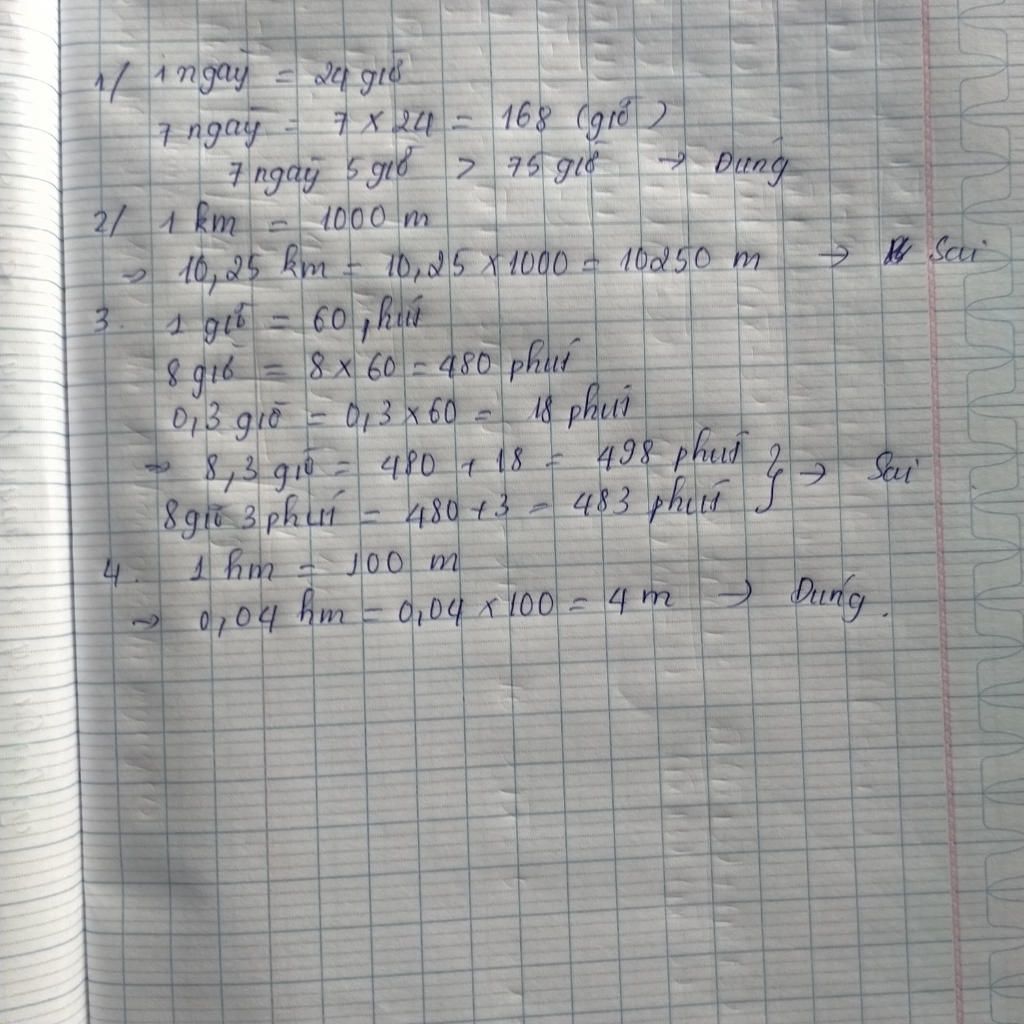 1/ 1 ngày = 24 giờ
7 ngày = 7 × 24 = 168 (giờ)
7 ngày 5 giờ > 75 giờ → Đúng
2/ 1 km = 1000 m
⇒ 10,25 km = 10,25 × 1000 = 10250 m → Sai
3. 1 giờ = 60 phút
8 giờ = 8 × 60 = 480 phút
0,3 giờ = 0,3 × 60 = 18 phút
⇒ 8,3 giờ = 480 + 18 = 498 phút } → Sai
8 giờ 3 phút = 480 + 3 = 483 phút
4. 1 hm = 100 m
⇒ 0,04 hm = 0,04 × 100 = 4 m → Đúng.